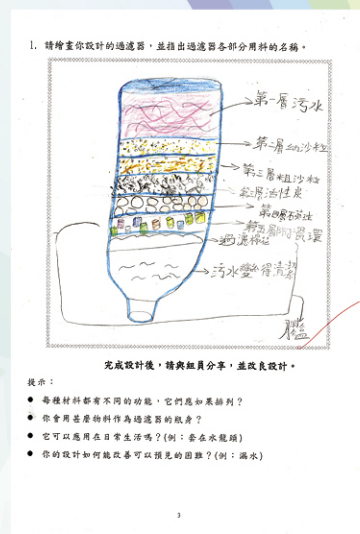 1. 請繪畫你設計的過濾器，並指出過濾器各部分用料的名稱。
第一層污水
第二層幼沙粒
第三層粗沙粒
活性炭
第四層石
第五層 環
過濾棉花
污水變得清潔
膠盆
完成設計後，請與組員分享，並改良設計。
提示：
● 每種材料都有不同的功能，它們應如果排列？
● 你會用甚麼物料作為過濾器的瓶身？
● 它可以應用在日常生活嗎？(例：套在水龍頭)
● 你的設計如何能改善可以預見的困難？(例：漏水)
3